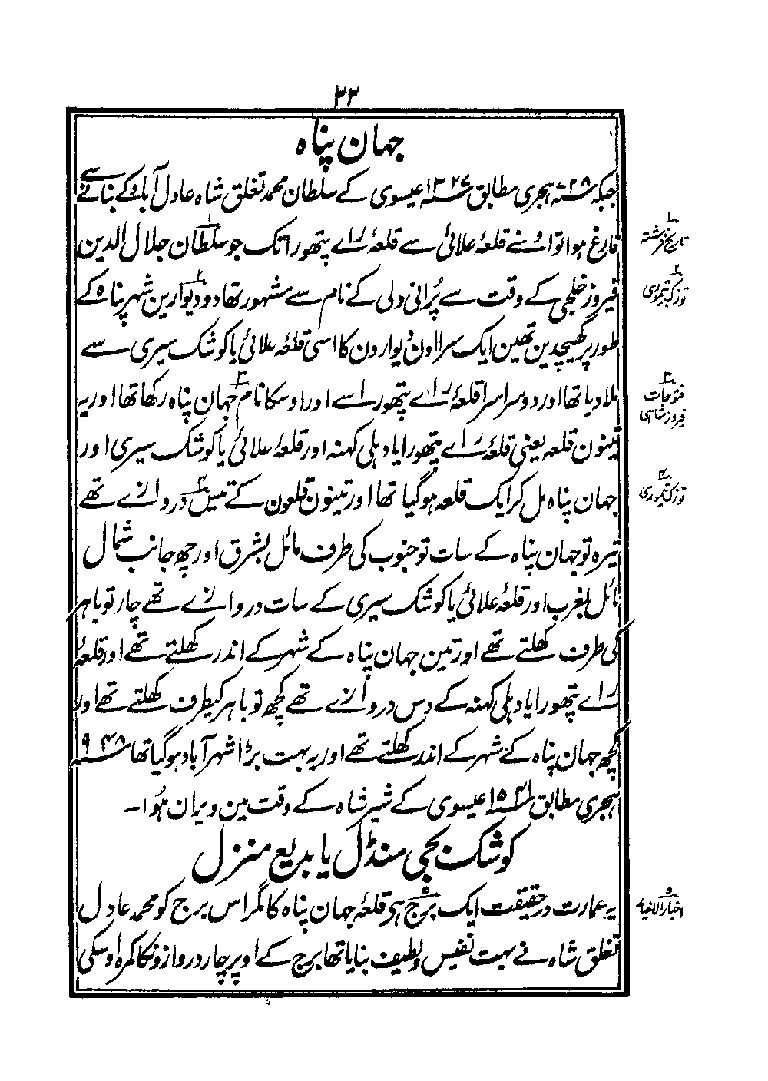 ۲۲
جہان پناہ
جبکہ ۷۲۸ ہجری مطابق ۱۳۲۷ عیسوی کے سلطان محمد تغلق شاہ عادل آباد کے بنانے سے
فارغ ہوا تو اوسنے قلعۂ علائی سے قلعۂ راے پتھورا تک جو سلطان جلال الدین
فیروز خلجی کے وقت سے پُرانی دلی کے نام سے مشہور تھا دو دیوارین شہر پناہ کے
طور پر کھیچدین تھین ایک سرا اون دیوارون کا اسی قلعۂ علائی یا کوشک سیری سے
ملا دیا تھا اور دوسرا سرا قلعۂ راے پتھورا سے اور اوسکا نام جہان پناہ رکھا تھا اور یہ
تینون قلعہ یعنی قلعۂ راے پتھورا یا دہلی کہنہ اور قلعۂ علائی یا کوشک سیری اور
جہان پناہ مل کر ایک قلعہ ہوگیا تھا اور تینون قلعون کے تیس دروازے تھے
تیرہ تو جہان پناہ کے سات تو جنوب کی طرف مائل بشرق اور چھ جانب شمال
مائل بغرب اور قلعۂ علائی یا کوشک سیری کے سات دروازے تھے چار تو باہر
کی طرف کھلتے تھے اور تین جہان پناہ کے شہر کے اندر کھلتے تھے اور قلعۂ
راے پتھورا یا دہلی کہنہ کے دس دروازے تھے کچھ تو باہر کیطرف کھلتے تھے اور
کچھ جہان پناہ کے شہر کے اندر کھلتے تھے اور یہ بہت بڑا شہر آباد ہوگیا تھا ۹۴۸
ہجری مطابق ۱۵۴۱ عیسوی کے شیر شاہ کے وقت مین ویران ہُوا۔
کوشک بجی منڈل یا بدیع منزل
یہ عمارت درحقیقت ایک برج ہی قلعۂ جہان پناہ کا مگر اس برج کو محمد عادل
تغلق شاہ نے بہت نفیس و لطیف بنایا تھا برج کے اوپر چار دروازونکا کمرہ اوسکی
۱
تاریخ فرشتہ
۲
توزک تیموری
۳
فتوحات
فیروز شاہی
۴
توزک تیموری
۵
اخبار الاخیار